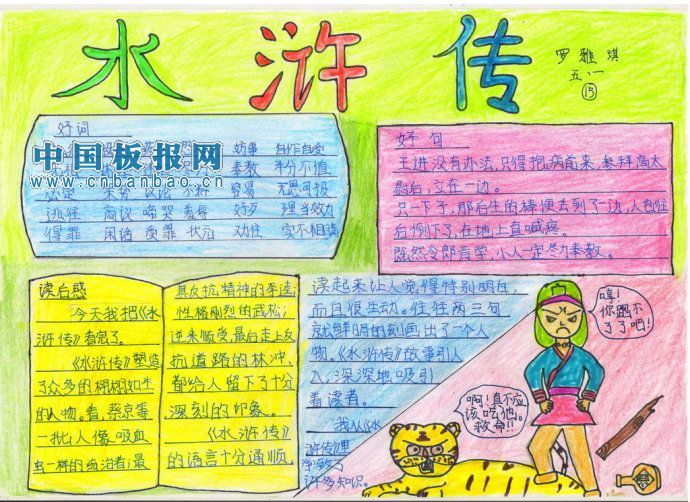 水 浒 传
罗雅琪
五.一
15
好词
中国板报网
www.cnbanbao.cn
妨事 自作自受
奉教 半分不值
容易 无恩可报
逃往 商议 啼哭 歹 理当效力
得罪 闲话 受罪 状元 劝住 实不相瞒
好句
王进没有办法,只得抱病前来,参拜高太
尉后,立在一边。
只一下子,那后生的棒便丢到了一边,人也往
后倒下了,在地上直喊疼。
既然令郎肯学,小人一定尽力奉教。
读后感
今天我把《水
浒传》看完了。
《水浒传》塑造
了众多的栩栩如生
的人物。看,蔡京等
一批人像吸血
虫一样的统治者;最
具反抗精神的李逵;
性格刚烈的武松;
逆来顺受,最后走上反
抗道路的林冲,
都给人留下了十分
深刻的印象。
《水浒传》
的语言十分通顺,
读起来让人觉得特别明白,
而且很生动。往往两三句
就鲜明的刻画出了一个人
物。《水浒传》故事引人
入,深深地吸引
着读者。
我从《水
浒传》里
学到了
许多知识。
哼!
你跑不
了了吧!
啊!真不应
该吃他。
救命!!